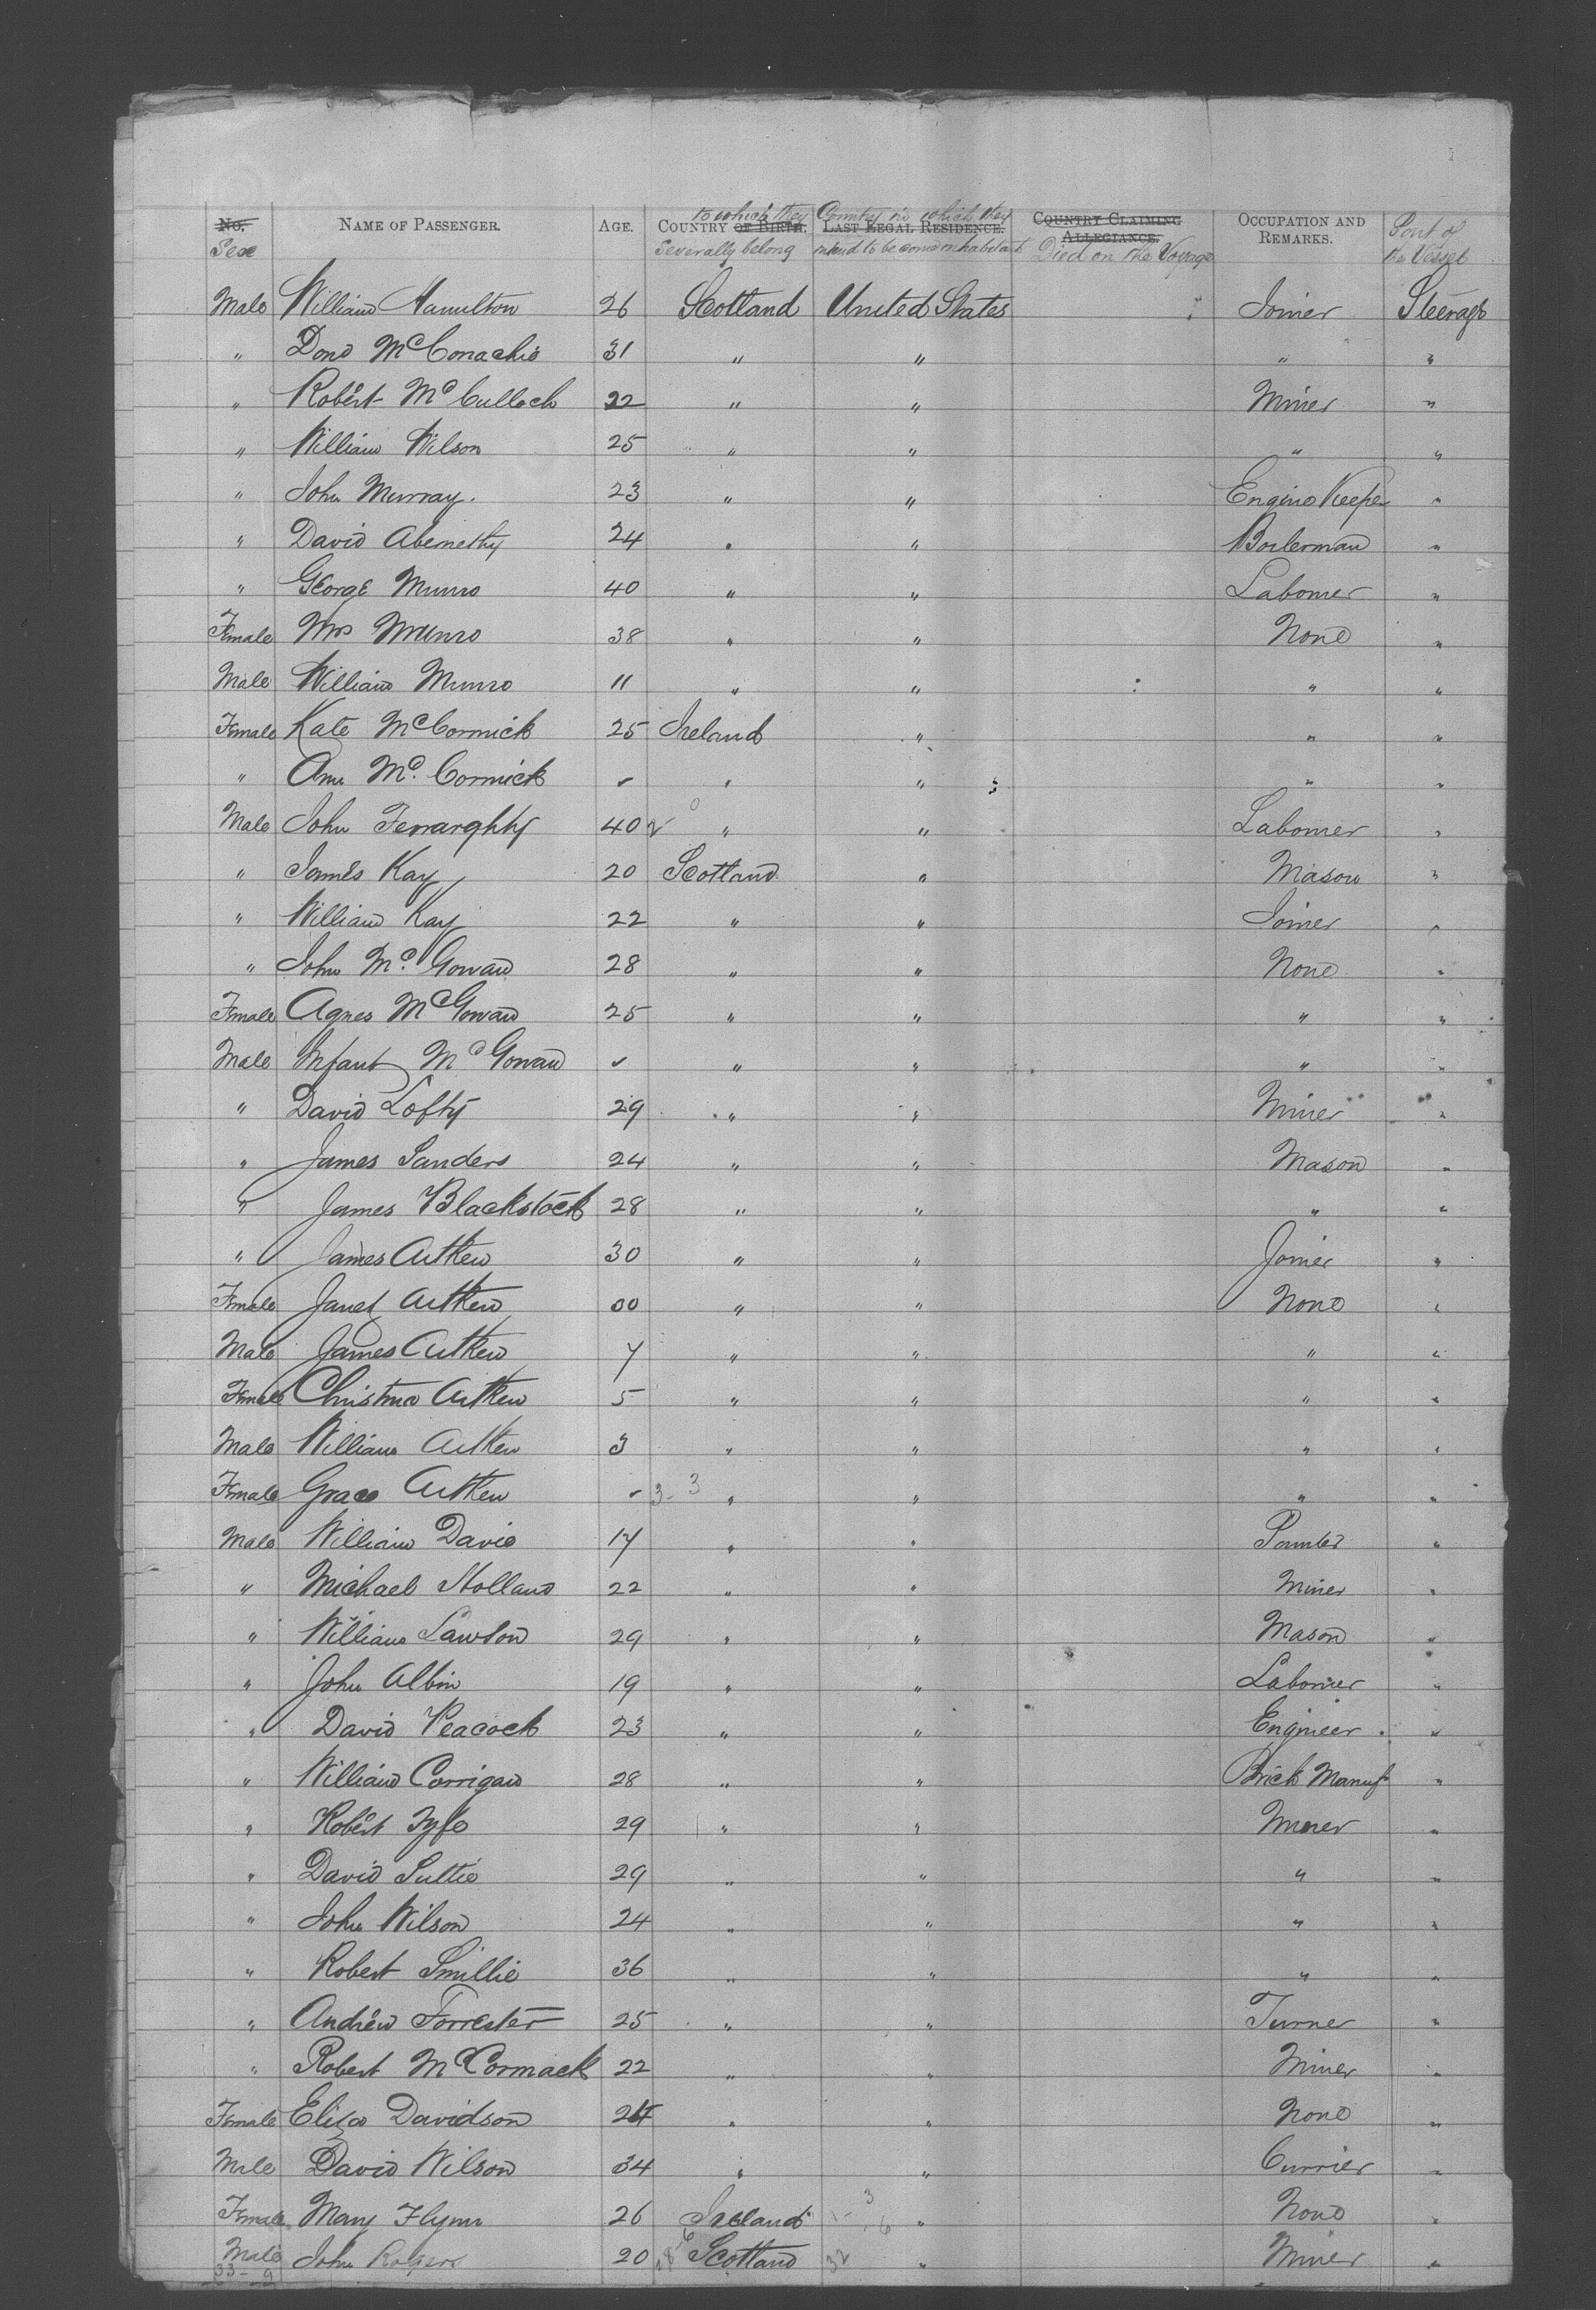 No. NAME OF PASSENGER. AGE. COUNTRY OF BIRTH. LAST LEGAL RESIDENCE. COUNTRY CLAIMING ALLEGIANCE. OCCUPATION AND REMARKS. Part of the Vessel
Sex to which they severally belong Country in which they intend to become inhabitants Died on the Voyage
Male William Hamilton 26 Scotland United States Joiner Steerage
" Dond McConachie 31 " " " "
" Robert McCulloch 22 " " Miner "
" William Wilson 25 " " " "
" John Murray. 23 " " Engine Keeper "
" David Abernethy 24 " " Boilerman "
" George Munro 40 " " Labourer "
Female Mrs Munro 38 " " None "
Male William Munro 11 " " " "
Female Kate McCormick 25 Ireland " " "
" Ann Mc. Cormick " " " "
Male John Ferrarghty 40 " " Labourer "
" James Kay 20 Scotland " Mason "
" William Kay 22 " " Joiner "
" John Mc. Gowan 28 " " None "
Female Agnes McGowan 25 " " " "
Male Infant McGowan " " " "
" David Lofty 29 " " Miner "
" James Sanders 24 " " Mason "
" James Blackstock 28 " " " "
" James Aitken 30 " " Joiner "
Female Janet Aitken 30 " " None "
Male James Aitken 7 " " " "
Female Christina Aitken 5 " " " "
Male William Aitken 3 " " " "
Female Grace Aitken 3- 3 " " " "
Male William Davie 17 " " Painter "
" Michael Holland 22 " " Miner "
" William Lawson 29 " " Mason "
" John Albin 19 " " Labourer "
" David Peacock 23 " " Engineer "
" William Corrigan 28 " " Brick Manuf "
" Robert Fyfe 29 " " Miner "
" David Suttie 29 " " " "
" John Wilson 24 " " " "
" Robert Smillie 36 " " " "
" Andrew Forrester 25 " " Turner "
" Robert McCormack 22 " " Miner "
Female Eliza Davidson 24 " " None "
Male David Wilson 34 " " Currier "
Female Mary Flynn 26 Ireland " None "
Male John Rogers 20 Scotland " Miner "